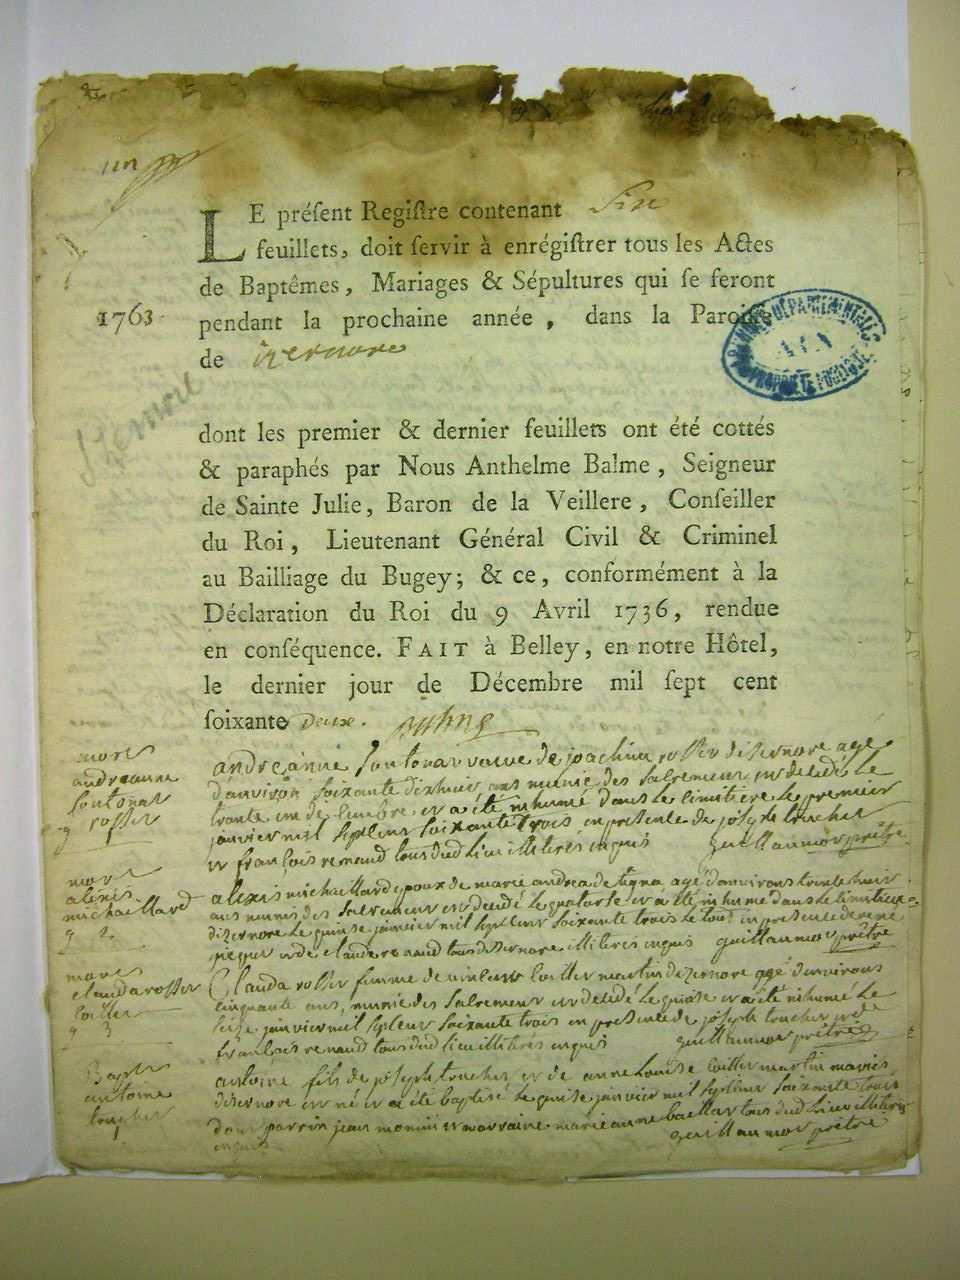 un
LE préſent Regiſtre contenant Six
feuillets, doit ſervir à enrégiſtrer tous les Actes
de Baptêmes, Mariages & Sépultures qui ſe ſeront
1763.
pendant la prochaine année, dans la Paroiſſe
de izernore
ARCHIVES DÉPARTEMENTALES
AIN
PROPRIÉTÉ PUBLIQUE
Izernore
dont les premier & dernier feuillets ont été cottés
& paraphés par Nous Anthelme Balme, Seigneur
de Sainte Julie, Baron de la Veillere, Conſeiller
du Roi, Lieutenant Général Civil & Criminel
au Bailliage du Bugey; & ce, conformément à la
Déclaration du Roi du 9 Avril 1736, rendue
en conſéquence. FAIT à Belley, en notre Hôtel,
le dernier jour de Décembre mil ſept cent
ſoixante deux.
mort
andreanne
fontonar
rosser
andreanne fontonar vauve de joachim rosser dizernore age
d'anviron soixante dixhuit ans munie des sacremens est decedé le
trante un decembre et a été inhumé dans le cimitiere le premier
janvier mil sept cens soixante trois en presence de joseph trucher
et françois renaud tous dud lieu illiteres enquis guillaumot prêtre
mort
alexis
michaillard
2
alexis michaillard epoux de marie andrea de agé d'anvirons trente huit
ans munis des sacremens est decedé le quatorse et a été inhumé dans le cimitiere
dizernore le quinse janvier mil sept cens soixante trois le tout en presence de rene
et de claude renaud tous dizernore illiteres enquis guillaumot prêtre
morte
clauda rosser
coiller
3
Clauda rosser femme de vincent coiller martin dezernore agé d'anvirons
cinquante ans, munie des sacremens est decedé le quinse et a été inhumé le
seize janvier mil sept cens soixante trois en presence de joseph trucher et de
françois renaud tous dud lieu illiteres enquis guillaumot prêtre
Bapt
antoine
trucher
1
antoine fils de joseph trucher et de anne louise coiller martin mariés
dizernore est né et a été baptisé le quinse janvier mil sept cens soixante trois
dont parrain jean monin et marraine marie anne baillat tous dud lieu illiteres
enquis guillaumot prêtre